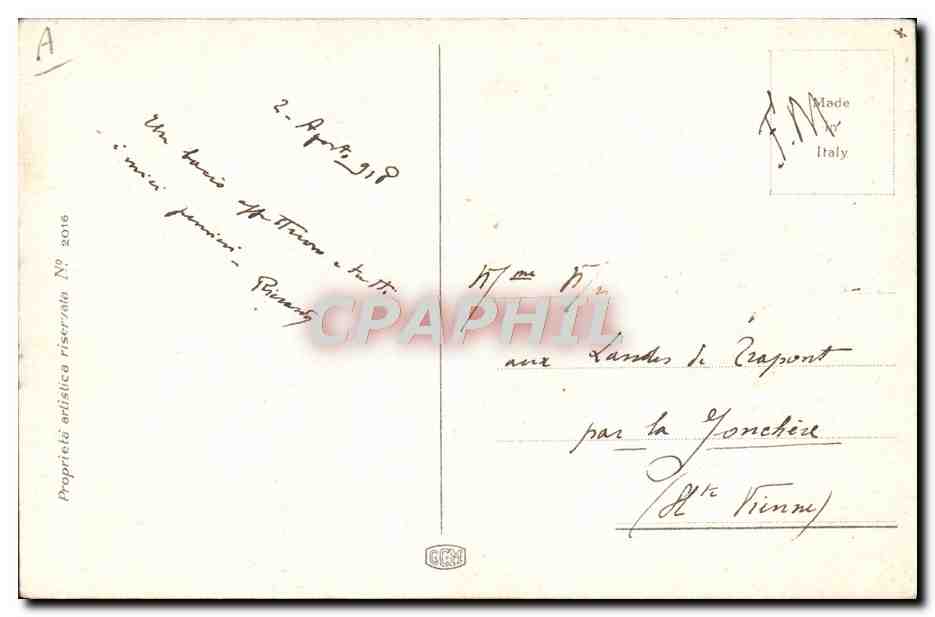 A
2 - Agosto 918
Un bacio affettuoso a tutti.
i miei pensieri -
Riccardo
Proprietà artistica riservata Nº 2016
F.M
Made
in
Italy
Mme
aux Landes de Trapont
par la Jonchère
(Hte Vienne)
CPAPHIL
GCM